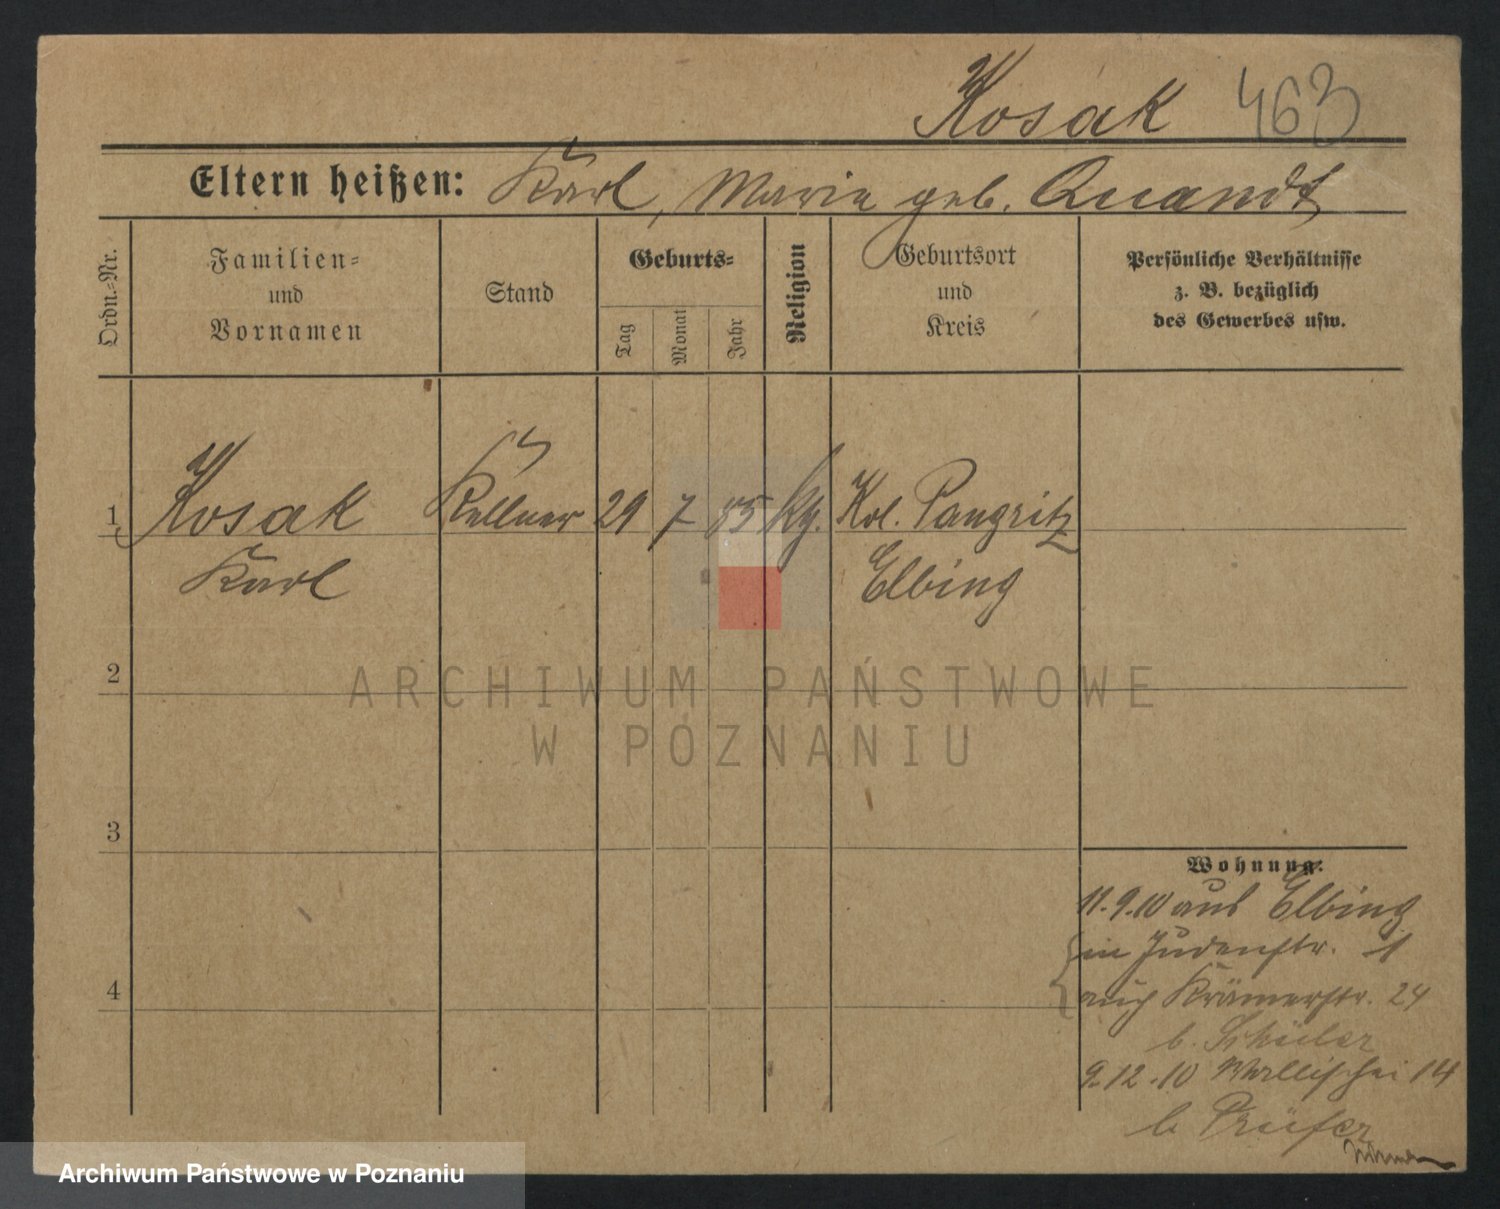 Kosak 463
Eltern heißen: Karl, Maria geb. Quandt
Ordn.-Nr.
Familien-
und
Vornamen
Stand
Geburts-
Tag
Monat
Jahr
Religion
Geburtsort
und
Kreis
Persönliche Verhältnisse
z. B. bezüglich
des Gewerbes usw.
1 Kosak Kellner 29 7 85 Kol. Pangritz
Karl Elbing
2
ARCHIWUM PAŃSTWOWE
W POZNANIU
3
Wohnung:
11.9.10 aus Elbing
in Judenstr. 1
auch Krämerstr. 24
b. Schüler
4
9.12.10 Wallischei 14
b Prüfer
Archiwum Państwowe w Poznaniu